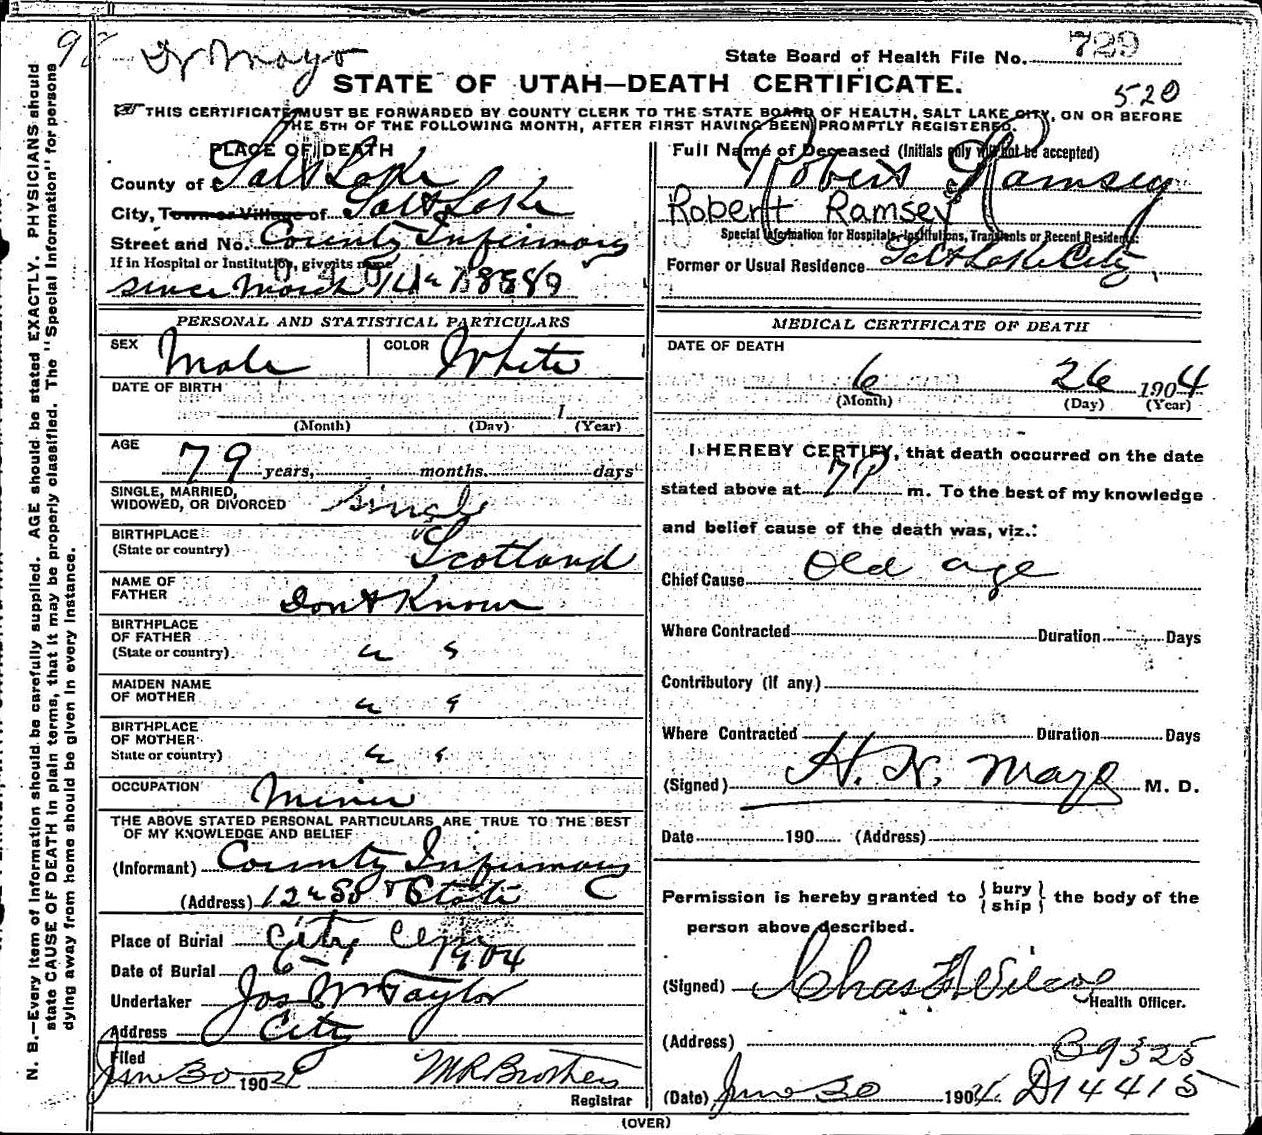 Dr Mayo
State Board of Health File No. 729
STATE OF UTAH—DEATH CERTIFICATE.
520
THIS CERTIFICATE MUST BE FORWARDED BY COUNTY CLERK TO THE STATE BOARD OF HEALTH, SALT LAKE CITY, ON OR BEFORE
THE 5TH OF THE FOLLOWING MONTH, AFTER FIRST HAVING BEEN PROMPTLY REGISTERED.
PLACE OF DEATH
County of Salt Lake
City, Town or Village of Salt Lake
Street and No. County Infirmary
If in Hospital or Institution, give its name
since March
Full Name of Deceased (Initials only will not be accepted)
Robert Ramsey
Robert Ramsey
Special Information for Hospitals, Institutions, Transients or Recent Residents:
Former or Usual Residence Salt Lake City,
PERSONAL AND STATISTICAL PARTICULARS
SEX Male COLOR White
DATE OF BIRTH
1
(Month) (Day) (Year)
AGE
79 years, months. days
SINGLE, MARRIED,
WIDOWED, OR DIVORCED Single
BIRTHPLACE
(State or country) Scotland
NAME OF
FATHER Dont Know
BIRTHPLACE
OF FATHER
(State or country) " "
MAIDEN NAME
OF MOTHER " "
BIRTHPLACE
OF MOTHER
State or country) " "
OCCUPATION Miner
THE ABOVE STATED PERSONAL PARTICULARS ARE TRUE TO THE BEST
OF MY KNOWLEDGE AND BELIEF
(Informant) County Infirmary
(Address) 12th So & State
Place of Burial City Cem
Date of Burial 1904
Undertaker Jos Wm Taylor
Address City
Filed
June 30 1904 M R Brothers
Registrar
MEDICAL CERTIFICATE OF DEATH
DATE OF DEATH
6 26 1904
(Month) (Day) (Year)
I HEREBY CERTIFY, that death occurred on the date
stated above at 7 P m. To the best of my knowledge
and belief cause of the death was, viz.:
Chief Cause Old age
Where Contracted Duration Days
Contributory (if any)
Where Contracted Duration Days
(Signed) H. N. Mayo M. D.
Date 190 (Address)
Permission is hereby granted to { bury
ship } the body of the
person above described.
(Signed) Chas F Wilcox
Health Officer.
(Address) B9325
(Date) June 30 1904. D14415
(OVER)
N. B.—Every item of information should be carefully supplied. AGE should be stated EXACTLY. PHYSICIANS should
state CAUSE OF DEATH in plain terms, that it may be properly classified. The "Special Information" for persons
dying away from home should be given in every instance.